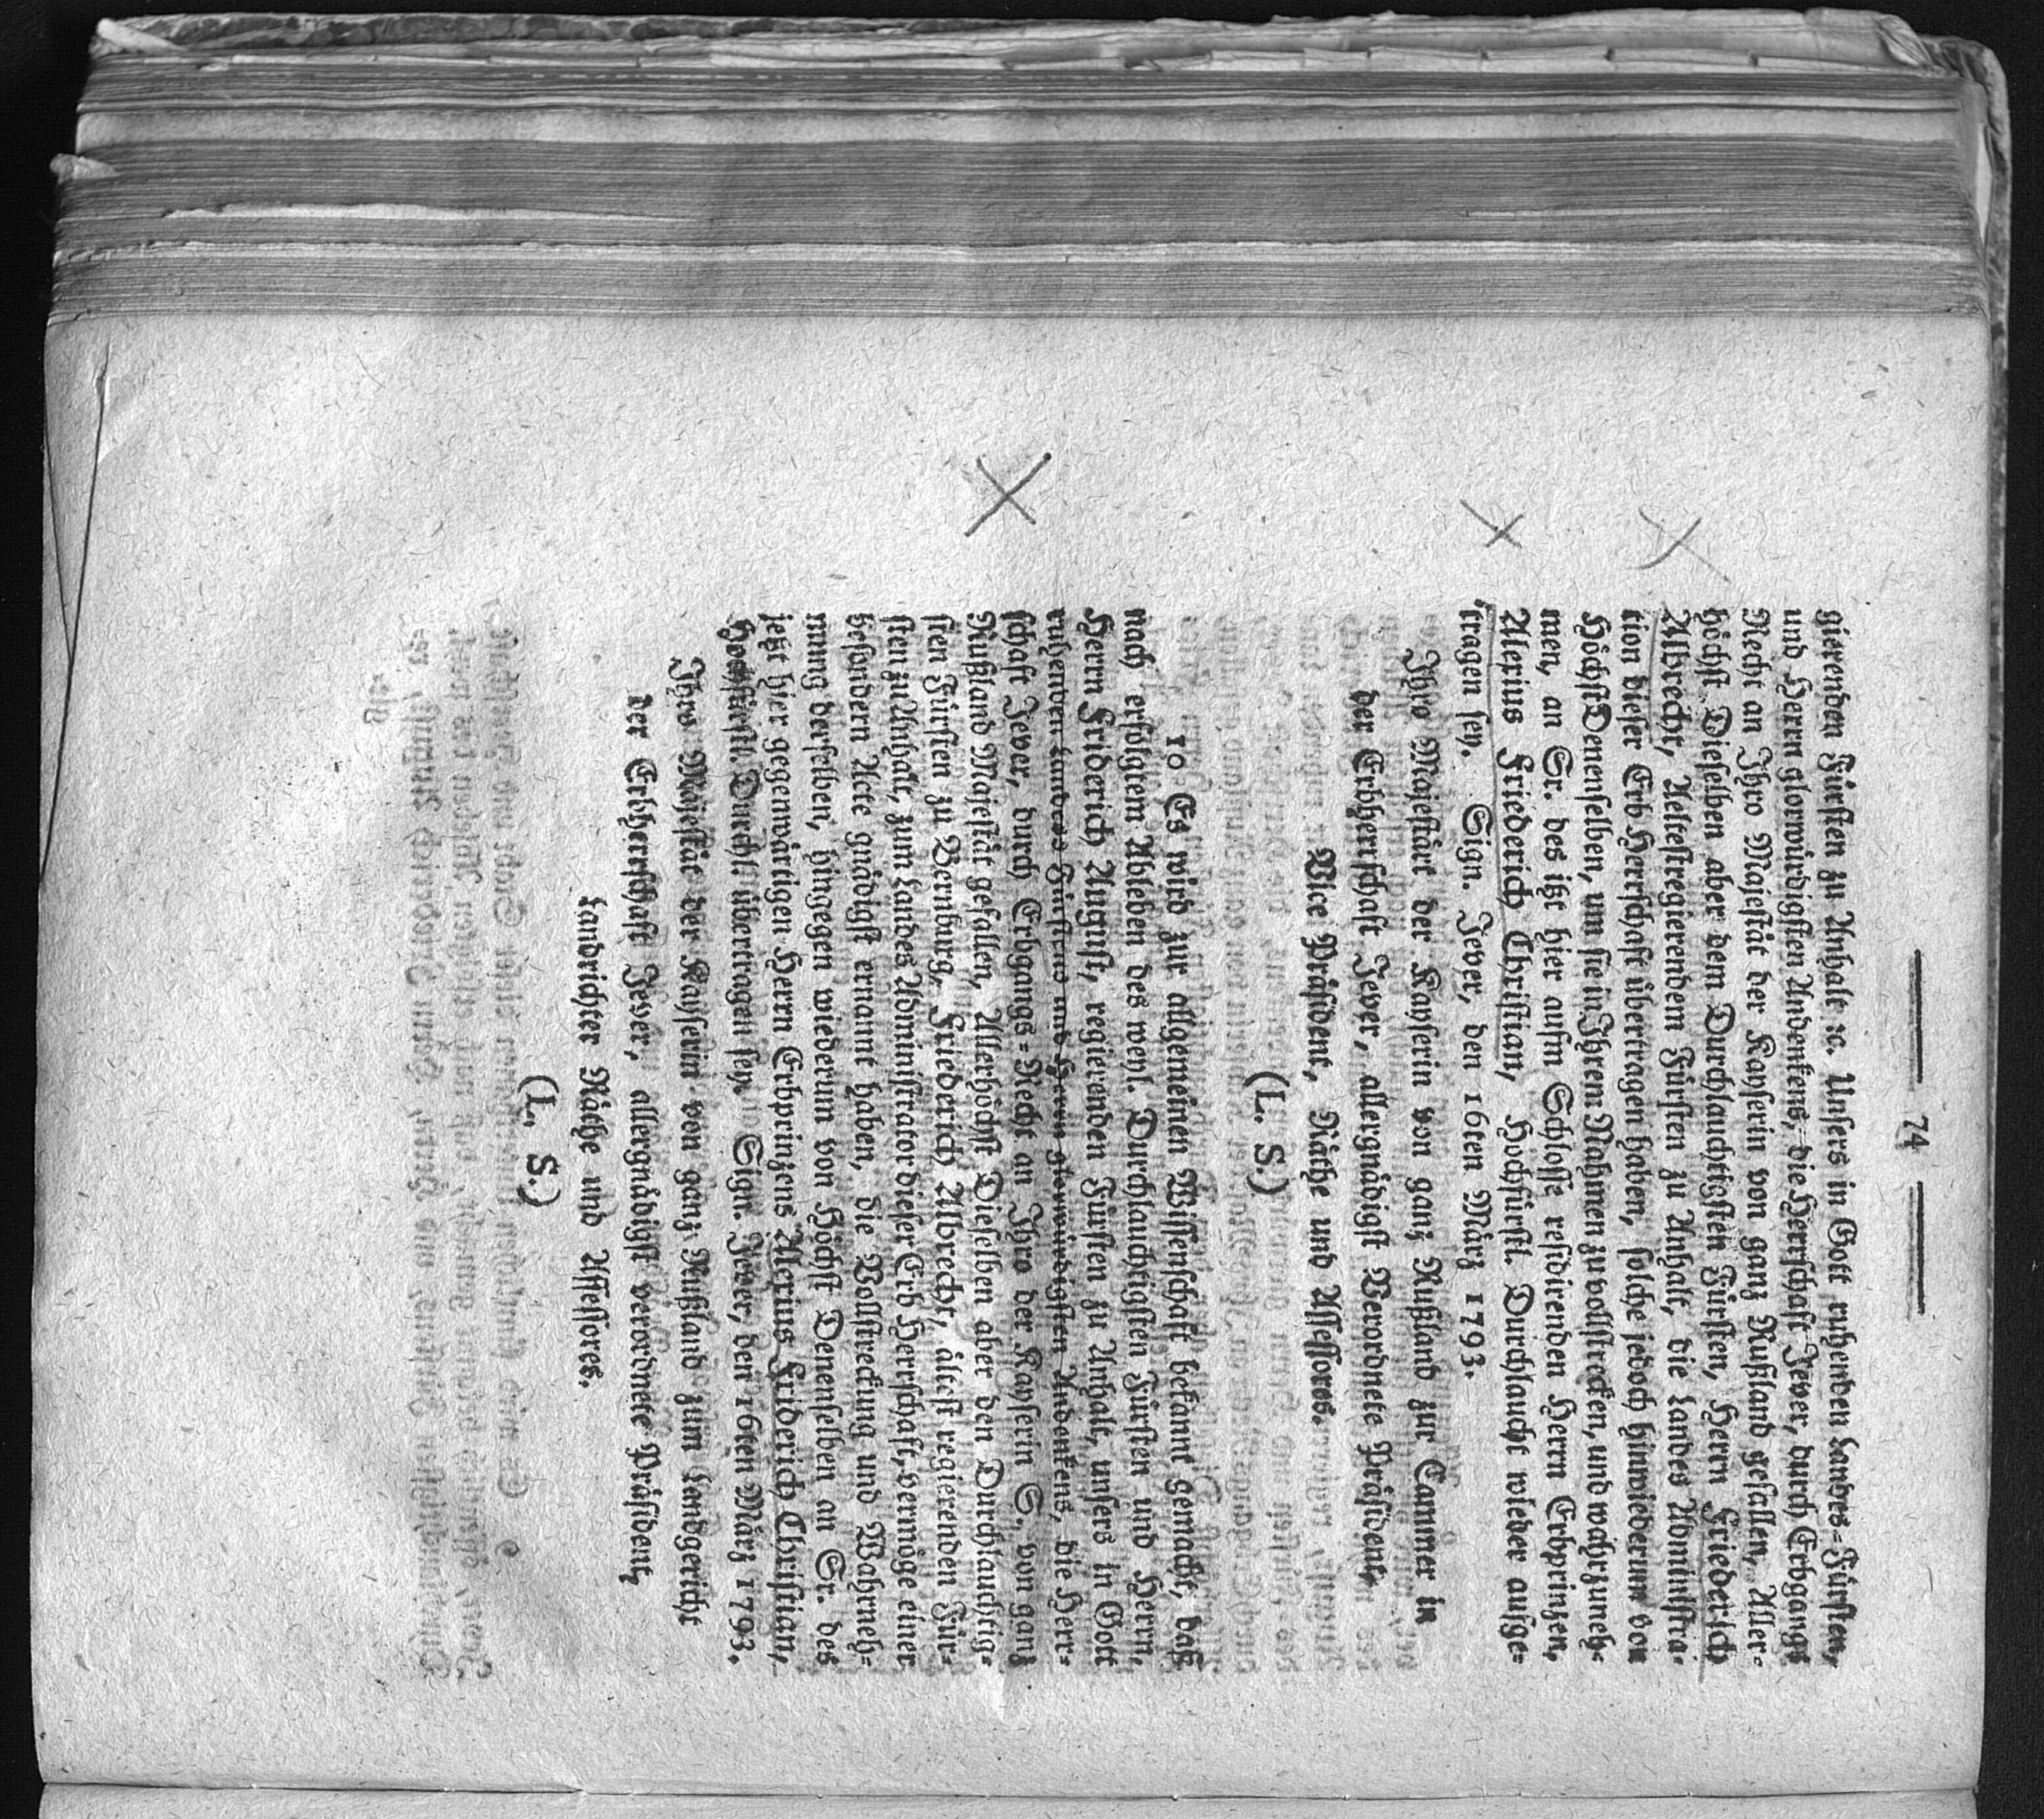 —— 74 ——
gierenden Fürsten zu Anhalt ꝛc. Unsers in Gott ruhenden Landes-Fürsten,
und Herrn glorwürdigsten Andenkens, die Herrschaft Jever, durch Erbgangs
Recht an Ihro Majestät der Kayserin von ganz Rußland gefallen, Aller-
höchst Dieselben aber dem Durchlauchtigsten Fürsten, Herrn Friederich
Albrecht, Aeltestregierendem Fürsten zu Anhalt, die Landes Administra-
tion dieser Erb Herrschaft übertragen haben, solche jedoch hinwiederum von
Höchst Denenselben, um sie in Ihrem Nahmen zu vollstrecken, und wahrzuneh-
men, an Sr. des itzt hier aufm Schlosse residirenden Herrn Erbprinzen,
Alexius Friederich Christian, Hochfürstl. Durchlaucht wieder aufge-
tragen sey. Sign. Jever, den 16ten März 1793.
Ihro Majestät der Kayserin von ganz Rußland zur Cammer in
der Erbherrschaft Jever, allergnädigst Verordnete Präsident,
Vice Präsident, Räthe und Assessores.
(L. S.)
10 Es wird zur allgemeinen Wissenschaft bekannt gemacht, daß
nach erfolgtem Ableben des weyl. Durchlauchtigsten Fürsten und Herrn,
Herrn Friderich August, regierenden Fürsten zu Anhalt, unsers in Gott
ruhenden Landes Fürsten und Herrn glorwürdigsten Andenkens, die Herr-
schaft Jever, durch Erbgangs-Recht an Ihro der Kayserin S., von ganz
Rußland Majestät gefallen, Allerhöchst Dieselben aber den Durchlauchtig-
sten Fürsten zu Bernburg, Friederich Albrecht, ältest regierenden Für-
sten zu Anhalt, zum Landes Administrator dieser Erb Herrschaft, vermöge einer
besondern Acte gnädigst ernannt haben, die Vollstreckung und Wahrneh-
mung derselben, hingegen wiederum von Höchst Denenselben an Sr. des
jetzt hier gegenwärtigen Herrn Erbprinzens Alexius Friderich Christian,
Hochfürstl. Durchl. übertragen sey. Sign. Jever, den 16ten März 1793.
Ihro Majestät der Kayserin von ganz Rußland zum Landgericht
der Erbherrschaft Jever, allergnädigst verordnete Präsident,
Landrichter Räthe und Assessores.
(L. S.)